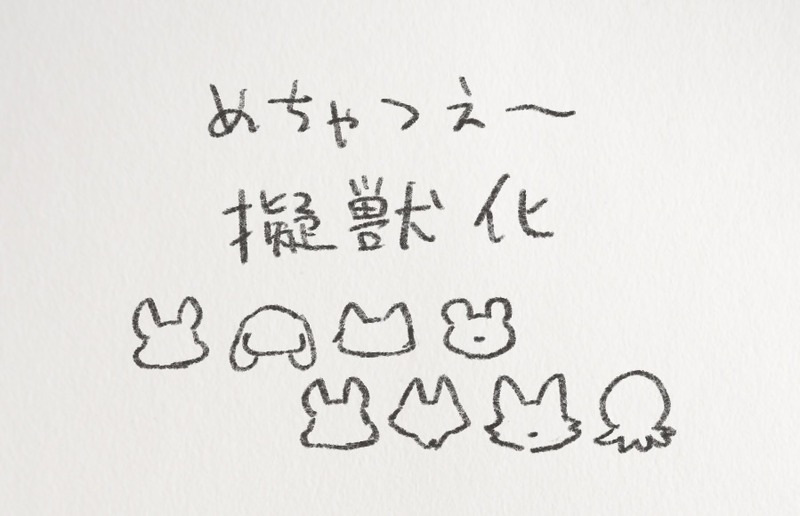 めちゃつえ〜
擬獣化